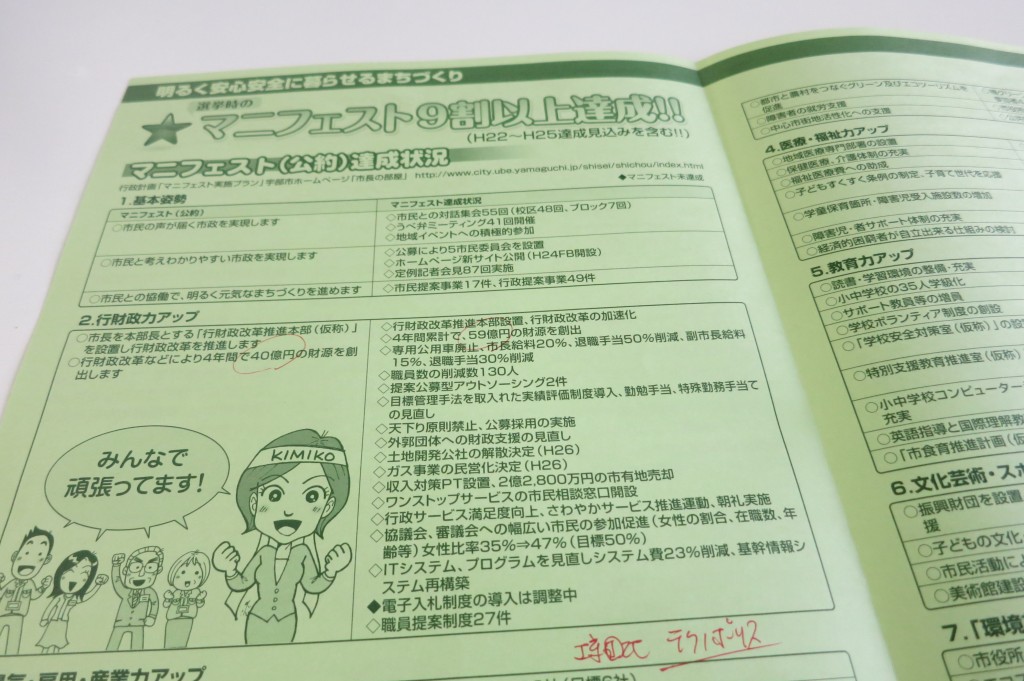 明るく安心安全に暮らせるまちづくり
選挙時の
★マニフェスト9割以上達成!!
(H22～H25達成見込みを含む!!)
マニフェスト(公約)達成状況
行政計画「マニフェスト実施プラン」宇部市ホームページ「市長の部屋」 http://www.city.ube.yamaguchi.jp/shisei/shichou/index.html
◆マニフェスト未達成
1.基本姿勢
マニフェスト(公約)
マニフェスト達成状況
○市民の声が届く市政を実現します
◇市民との対話集会55回(校区48回、ブロック7回)
◇うべ弁ミーティング41回開催
◇地域イベントへの積極的参加
○市民と考えわかりやすい市政を実現します
◇公募により5市民委員会を設置
◇ホームページ新サイト公開(H24FB開設)
◇定例記者会見87回実施
○市民との協働で、明るく元気なまちづくりを進めます
◇市民提案事業17件、行政提案事業49件
2.行財政力アップ
○市長を本部長とする「行財政改革推進本部(仮称)」
を設置し行財政改革を推進します
○行財政改革などにより4年間で40億円の財源を創
出します
◇行財政改革推進本部設置、行財政改革の加速化
◇4年間累計で、59億円の財源を創出
◇専用公用車廃止、市長給料20%、退職手当50%削減、副市長給料
15%、退職手当30%削減
◇職員数の削減数130人
◇提案公募型アウトソーシング2件
◇目標管理手法を取入れた実績評価制度導入、勤勉手当、特殊勤務手当て
の見直し
◇天下り原則禁止、公募採用の実施
◇外郭団体への財政支援の見直し
◇土地開発公社の解散決定(H26)
◇ガス事業の民営化決定(H26)
◇収入対策PT設置、2億2,800万円の市有地売却
◇ワンストップサービスの市民相談窓口開設
◇行政サービス満足度向上、さわやかサービス推進運動、朝礼実施
◇協議会、審議会への幅広い市民の参加促進(女性の割合、在職数、年
齢等)女性比率35%⇒47%(目標50%)
◇ITシステム、プログラムを見直しシステム費23%削減、基幹情報シ
ステム再構築
◆電子入札制度の導入は調整中
◇職員提案制度27件
みんなで
頑張ってます!
KIMIKO
テクノポリス
気・雇用・産業力アップ
○都市と農村をつなぐグリーン及びエコツーリズムを
促進
○障害者の就労支援
○中心市街地活性化への支援
4.医療・福祉力アップ
○地域医療専門部署の設置
○保健医療、介護体制の充実
○福祉医療費への助成
○子どもすくすく条例の制定、子育て世代を応援
○学童保育箇所・障害児受入施設数の増加
○障害児・者サポート体制の充実
○経済的困窮者が自立出来る仕組みの検討
5.教育力アップ
○読書・学習環境の整備・充実
○小中学校の35人学級化
○サポート教員等の増員
○学校ボランティア制度の創設
○「学校安全対策室(仮称)」の設
○特別支援教育推進室(仮称)
○小中学校コンピューター
充実
○英語指導と国際理解教
○「市食育推進計画(仮
6.文化芸術・スポ
○振興財団を設置
援
○子どもの文化
○市民活動によ
○美術館建設
7.「環境
○市役所